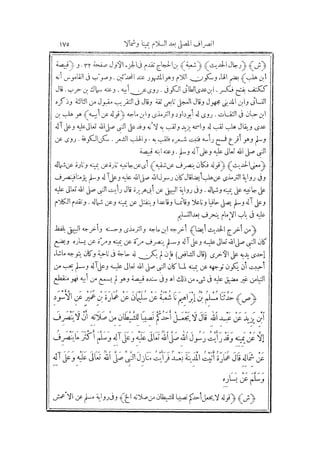 انصراف المصلى بعد السلام يمينا وشمالا ١٧٥
(ش) (رجال الحديث) (شعبة) بن الحجاج تقدم فى الجزء الأول صفحة ٣٢. و (قبيصة
ابن هلب) بضم الهاء وسكون اللام وهو المشهور عند المحدثين. وصوب فى القاموس أنه
ككتف بفتح فكسر. ابن عدى الطائى الكوفى. روى عن أبيه. وعنه سماك بن حرب. قال
النسائى وابن المدينى مجهول وقال العجلى تابعى ثقة وقال فى التقريب مقبول من الثالثة وذكره
ابن حبان فى الثقات. روى له أبو داود والترمذى وابن ماجه (قوله عن أبيه) هو هلب بن
عدى ويقال هلب لقب له واسمه يزيد ولقب به لأنه وفد على النبى صلى الله تعالى عليه وعلى آله
وسلم وهو أقرع فمسح رأسه فنبت شعره فلقب به. والهلب الشعر. سكن الكوفة. روى عن
النبى صلى الله تعالى عليه وعلى آله وسلم. وعنه ابنه قبيصة
(معنى الحديث) (قوله فكان ينصرف عن شقيه) أى عن جانبيه تارة عن يمينه وتارة عن شماله
وفى رواية الترمذى عن هلب أيضا قال كان رسول الله صلى الله عليه وعلى آله وسلم يؤمنا فينصرف
على جانبيه على يمينه وشماله. وفى رواية البيهقى عن أبى هريرة قال رأيت النبى صلى الله تعالى عليه
وعلى آله وسلم يصلى حافيا وناعلا وقائما وقاعدا وينفتل عن يمينه وعن شماله. وتقدم الكلام
عليه فى باب الإمام ينحرف بعد التسليم
(من أخرج الحديث أيضا) أخرجه ابن ماجه والترمذى وحسنه وأخرجه البيهقى بلفظ
كان النبى صلى الله تعالى عليه وعلى آله وسلم ينصرف مرة عن يمينه ومرة عن يساره ويضع
إحدى يديه على الأخرى (قال الشافعى) فإن لم يكن له حاجة فى ناحية وكان يتوجه ما شاء
أحببت أن يكون توجهه عن يمينه لما كان النبى صلى الله تعالى عليه وعلى آله وسلم يحب من
التيامن غير مضيق عليه فى شىء من ذلك اه وفى سنده قبيصة وهو لم يسمع من أبيه فهو منقطع
(ص) حَدَّثَنَا مُسْلِمُ بْنُ إِبْرَاهِيمَ نَا شُعْبَةُ عَنْ سُلَيْمَانَ عَنْ عُمَارَةَ بْنِ عُمَيْرٍ عَنِ الْأَسْوَدِ
ابْنِ يَزِيدَ عَنْ عَبْدِ اللهِ قَالَ لَا يَجْعَلْ أَحَدُكُمْ نَصِيبًا لِلشَّيْطَانِ مِنْ صَلَاتِهِ أَنْ لَا يَنْصَرِفَ
إِلَّا عَنْ يَمِينِهِ وَقَدْ رَأَيْتُ رَسُولَ اللهِ صَلَّى اللهُ تَعَالَى عَلَيْهِ وَعَلَى آلِهِ وَسَلَّمَ أَكْثَرَ مَا يَنْصَرِفُ
عَنْ شِمَالِهِ قَالَ عُمَارَةُ أَتَيْتُ الْمَدِينَةَ بَعْدُ فَرَأَيْتُ مَنَازِلَ النَّبِيِّ صَلَّى اللهُ تَعَالَى عَلَيْهِ وَعَلَى آلِهِ
وَسَلَّمَ عَنْ يَسَارِهِ
(ش) (قوله لا يجعل أحدكم نصيبا للشيطان من صلاته الخ) وفى رواية مسلم عن الأعمش